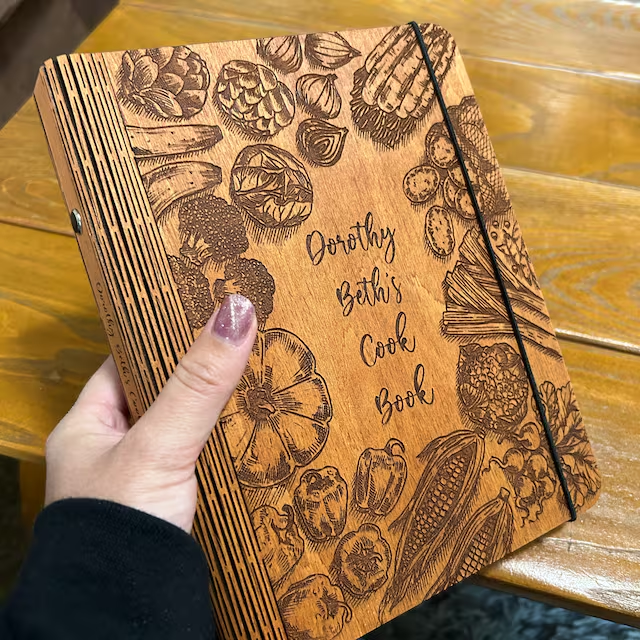 Dorothy
Beth's
Cook
Book
Dorothy Beth's C